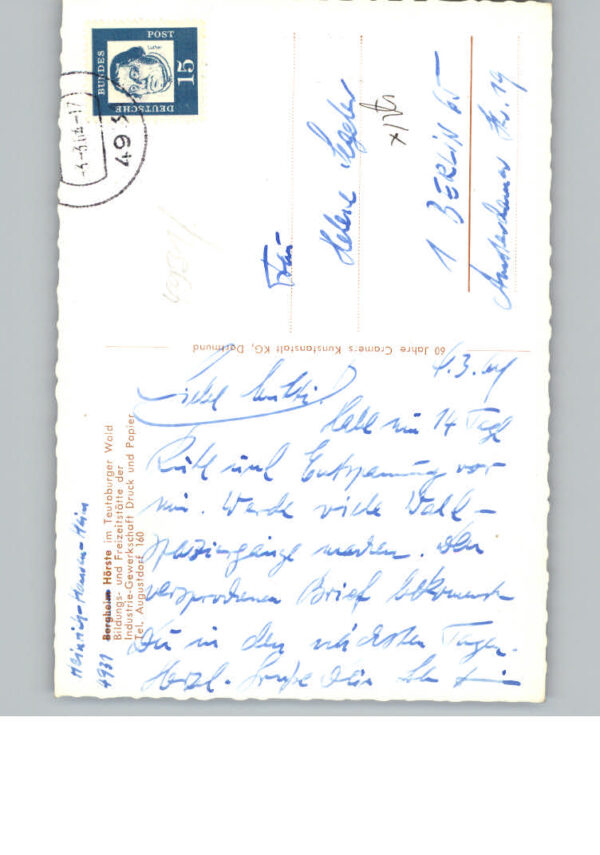 4.3.64
Liebe Mutti!
Habe nun 14 Tage
Ruhe und Entspannung vor
mir. Werde viele Wald-
spaziergänge machen. Den
versprochenen Brief bekommst
Du in den nächsten Tagen.
Herzl. Grüße Dein
Frau
Helene
1 BERLIN 65
Str. 19
DEUTSCHE
BUNDES
POST
15
60 Jahre Cramers Kunstanstalt KG, Dortmund
Heinrich-Hansen-Heim
4931 Bergheim Hörste im Teutoburger Wald
Bildungs- und Freizeitstätte der
Industrie-Gewerkschaft Druck und Papier
Tel. Augustdorf 160